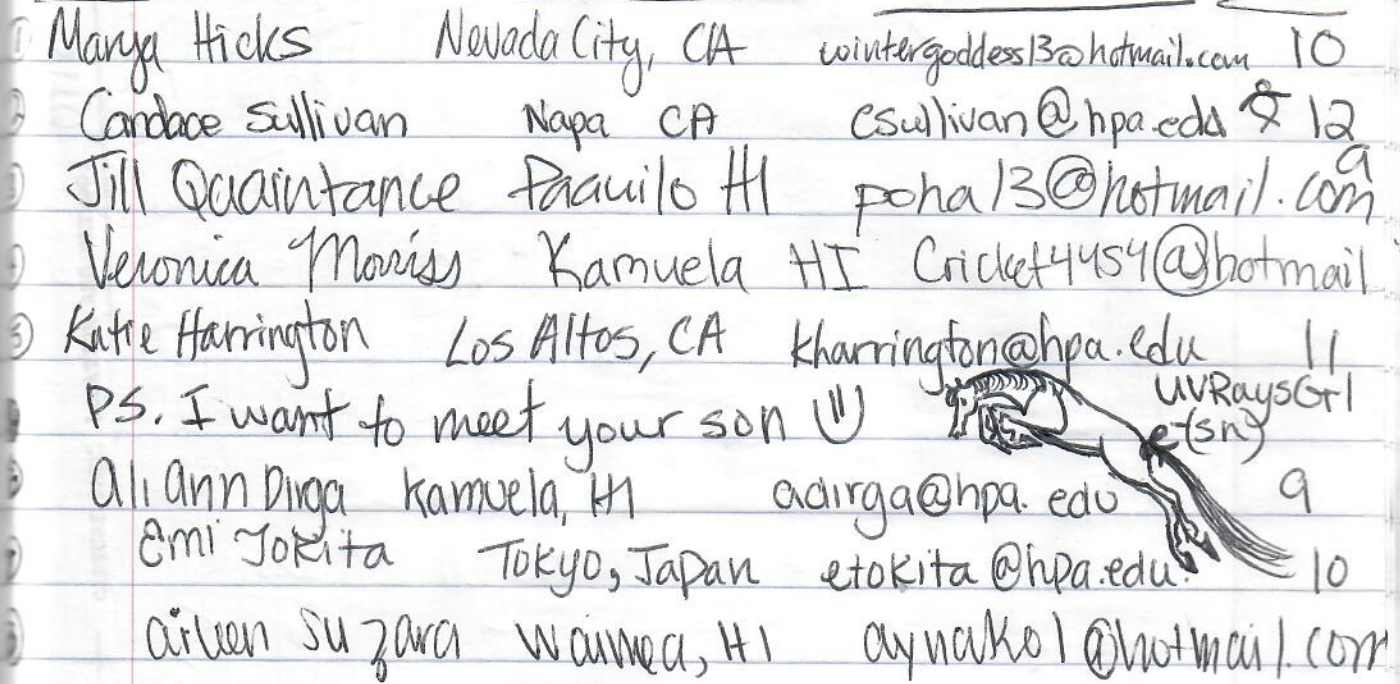 Marya Hicks Nevada City, CA wintergoddess13@hotmail.com 10
Candace Sullivan Napa CA csullivan@hpa.edu 12
Jill Quaintance Paauilo HI poha13@hotmail.com 9
Veronica Morriss Kamuela HI Cricket4454@hotmail
Katie Harrington Los Altos, CA kharrington@hpa.edu 11
PS. I want to meet your son UVRaysGrl
(sn)
Ali Ann Dirga Kamuela, HI adirga@hpa.edu 9
Emi Tokita Tokyo, Japan etokita@hpa.edu 10
aileen suzara Waimea, HI aynako1@hotmail.com